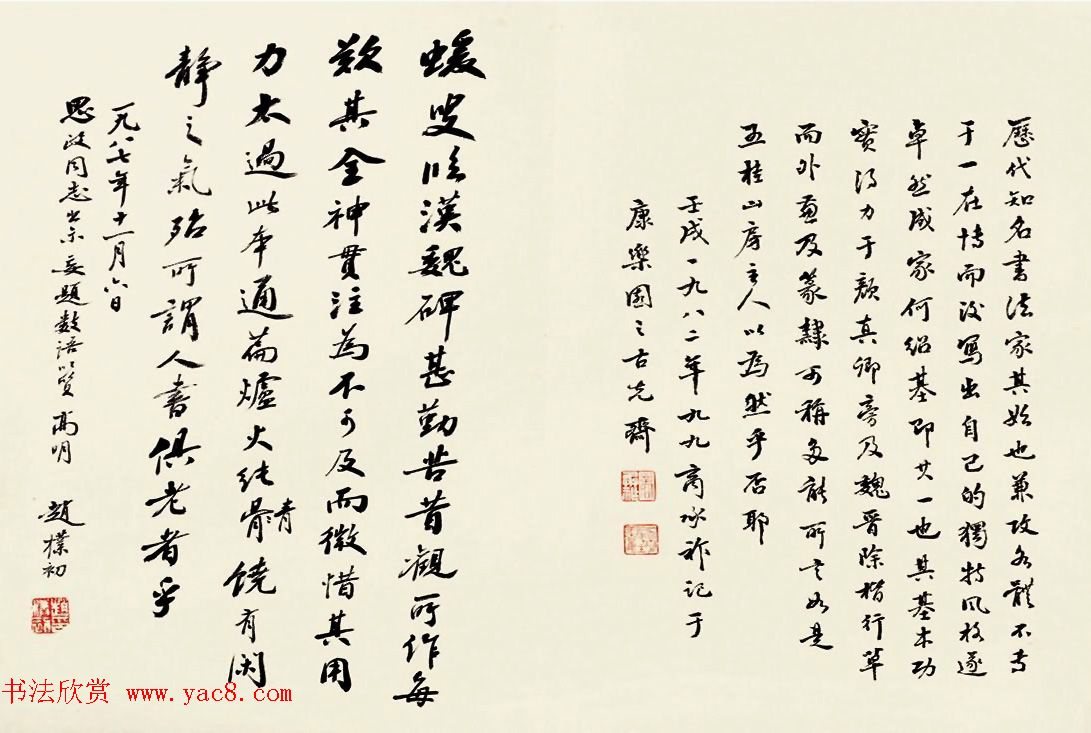 歷代知名書法家其始也兼攻各體不專
于一在博而後寫出自己的獨特风格遂
卓然成家何紹基即其一也其基本功
實得力于顏真卿旁及魏晉除楷行草
而外兼及篆隸可稱多能所言如是
五桂山房主人以為然乎否耶
壬戌一九八二年九九商承祚記于
康樂園之古先齊
蝯叟臨漢魏碑甚勤苦昔觀所作每
歎其全神貫注為不可及而微惜其用
力太過此本通篇爐火純青饒有闲
靜之氣殆所謂人書俱老者乎
一九八七年十一月六日
思政同志出示委題數語以質高明 趙樸初
书法欣赏 www.yac8.com